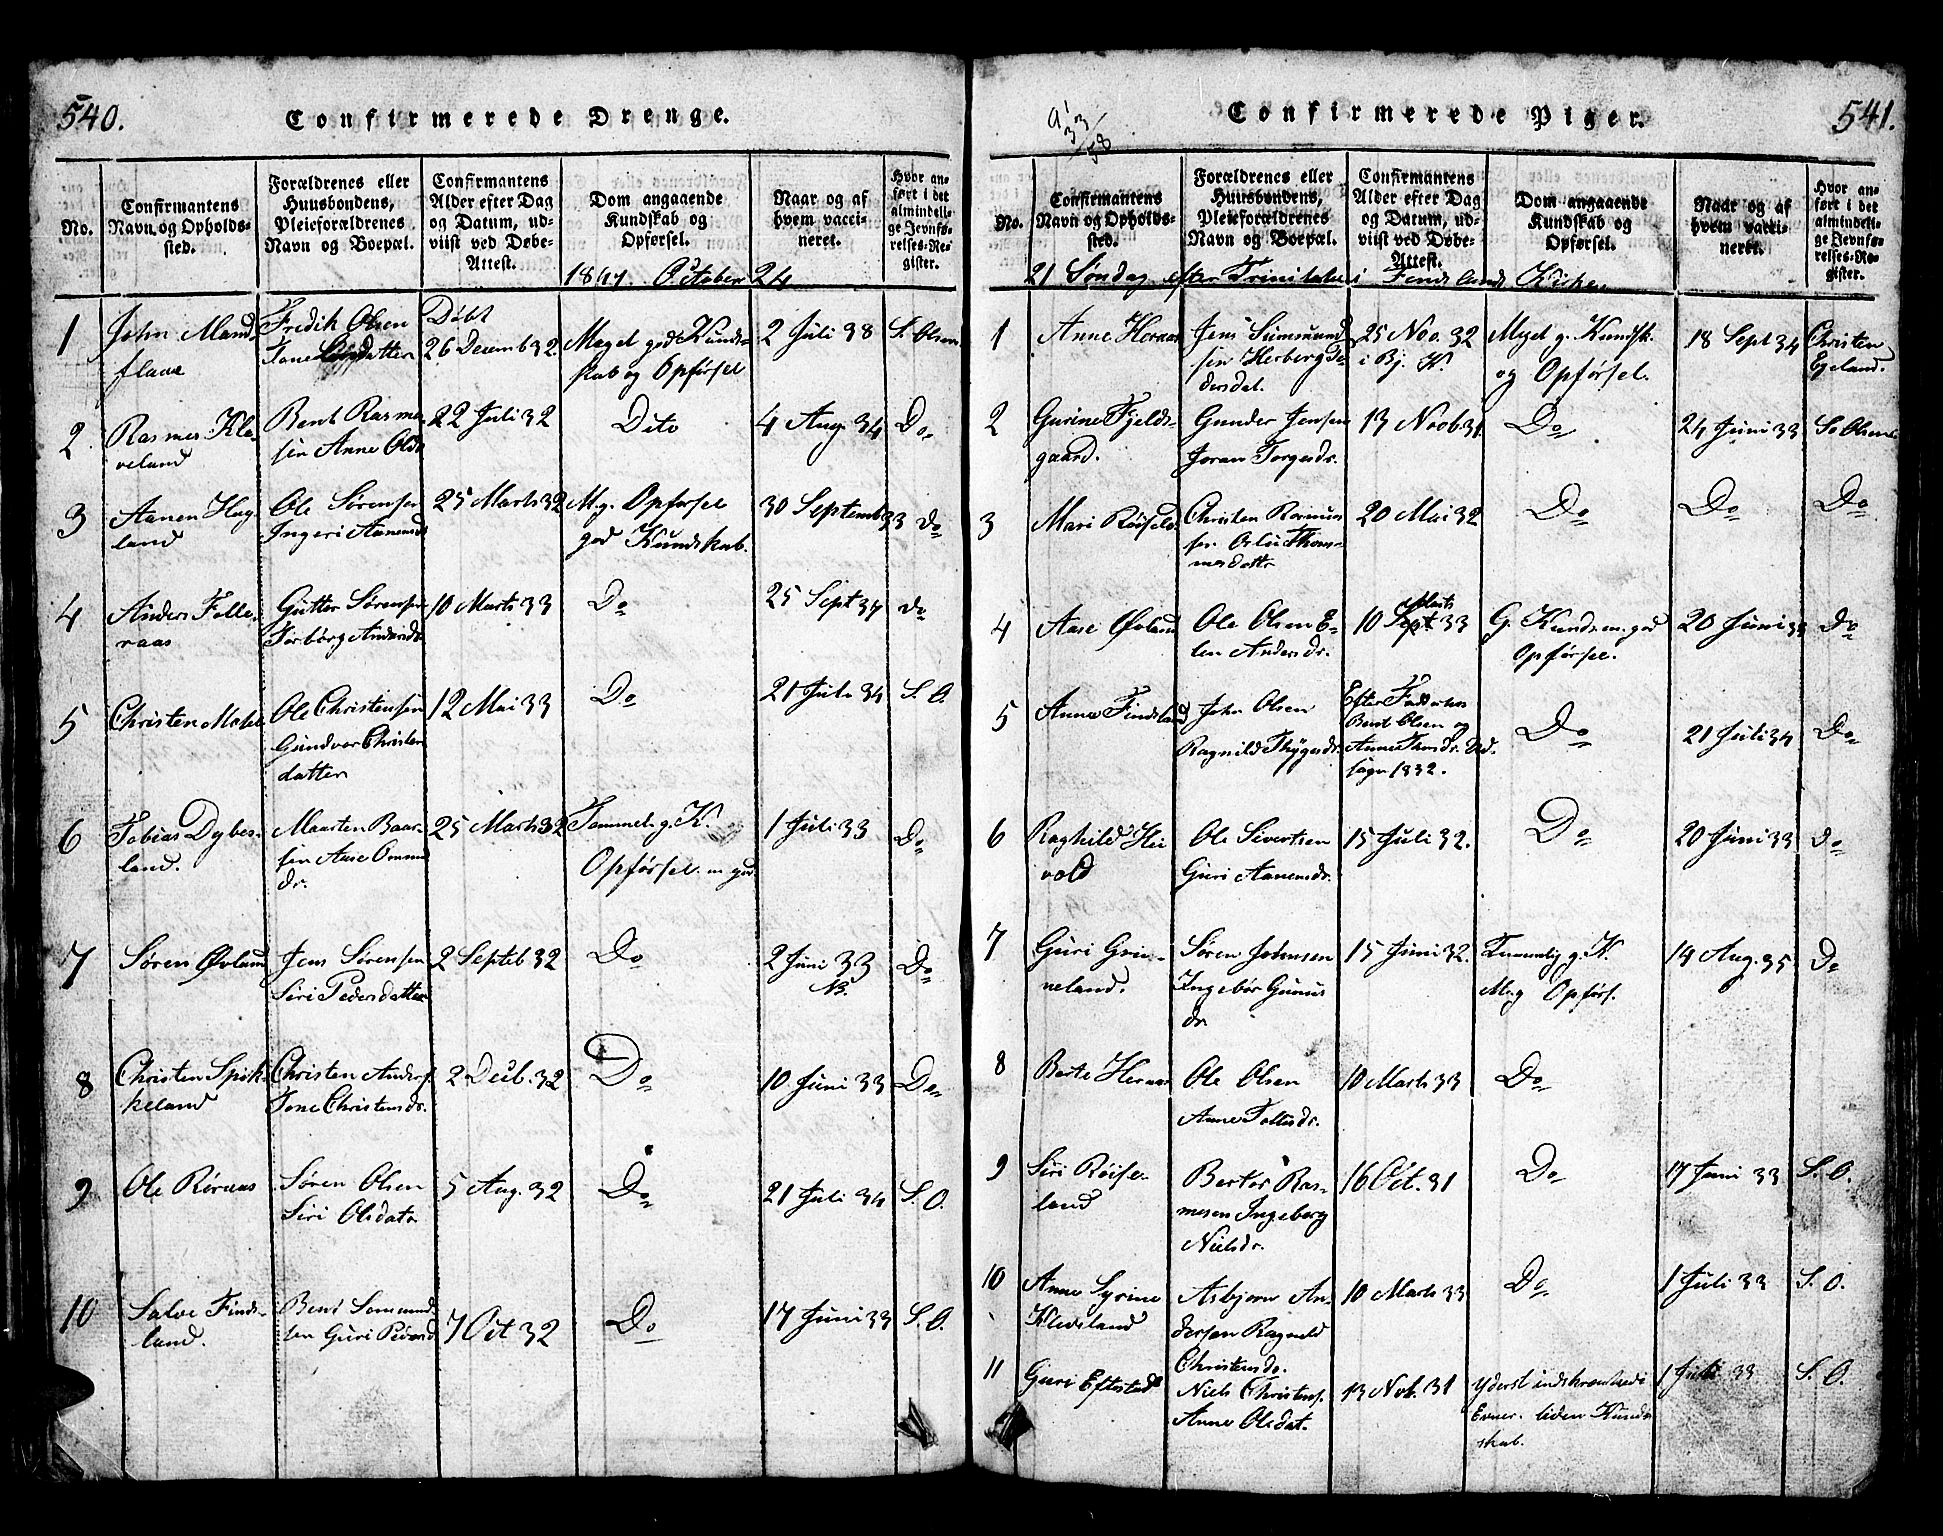 540.
Confirmerede Drenge.
No.
Confirmantens Navn og Opholdssted.
Forældrenes eller Huusbondens, Pleieforældrenes Navn og Boepæl.
Confirmantens Alder efter Dag og Datum, udviist ved Døbe-Attest.
Dom angaaende Kundskab og Opførsel.
Naar og af hvem vaccineret.
Hvor anført i det almindelige Jevnførelses-Register.
1847. October 24
1 John Mand- Fredik Olsen Døbt Meget god Kunds- 2 Juli 38 S. Olsen
flaae Tone 26 Decemb 32. skab og Opførsel
2 Rasmus Kle- Bent Rasme- 22 Juli 32 Dito 4 Aug. 34 Do
veland sen Anne Olsd
3 Aanen Hug- Ole Sørensen 25 Marts 32 M.g. Opførsel 30 Septemb 33 Do
land Ingeri Aanensd god Kundskab.
4 Anders Folle- Gutter Sørensen 10 Marts 33 Do 25 Sept 34 Do
raas Torborg Andersd.
5 Christen Ole Christensen 12 Mai 33 Do 21 Juli 34 S. O.
Gundvor Christen
datter
6 Tobias Dybes- Maarten Baar- 25 Marts 32 Temmel. g. K. 1 Juli 33 Do
land. sen Aase Omund Opførsel m god
dr.
7 Søren Øvland Jens Sørensen 2 Septeb 32 Do 2 Juni 33 Do
Siri Pedersdatter NB.
8 Christen Spik- Christen Anders. 2 Decb. 32 Do 10 Juni 33 Do
keland Tone Christensdr.
9 Ole Røraas Søren Olsen 5 Aug. 32 Do 21 Juli 34 S. O.
Siri Olsdatr
10 Salve Finds- Bent Somund- 7 Oct 32 Do 17 Juni 33 S. O.
land. sen Guri Pedersd
541.
Confirmerede Piger.
No.
Confirmantens Navn og Opholdssted.
Forældrenes eller Huusbondens, Pleieforældrenes Navn og Boepæl.
Confirmantens Alder efter Dag og Datum, udviist ved Døbe-Attest.
Dom angaaende Kundskab og Opførsel.
Naar og af hvem vaccineret.
Hvor anført i det almindelige Jevnførelses-Register.
21 Søndag efter Trinitatis i Findslands Kirke
1 Anne Heraas Jens Sumund 25 Nov. 32 Meget g. Kundsk. 18 Sept 34 Christen
sen i Bj. K. og Opførsel. Egeland.
2 Gurine Fjelds- Gunder Jensen 13 Novb. 31. Do 24 Juni 33 S. Olsen
gaard. Joran Torgersdr.
3 Mari Røiseld. Christen Rasmus 20 Mai 32 Do Do Do
sen Thom-
mesdattr
4 Aase Øvland Ole Olsen E- 10 Marts 33 G. Kunds. m. god 20 Juni 33 Do
len Andersdr. Opførsel.
5 Anna Findsland John Olsen Efter Faddernes Do 21 Juli 34 Do
Ragnild Thygesdr. Bent Olsen og
Anne Thordr. Ud-
sagn 1832.
6 Raghild Hei- Ole Sivertsen 15 Juli 32. Do 20 Juni 33 Do
vold Guri Aanensdr.
7 Guri Grin- Søren Johnsen 15 Juni 32. Temmelig g. K. 14 Aug. 35 Do
neland. Ingebor Gunus M.g Opførs.
dr
8 Berte Heraas Ole Olsen 10 Marts 33 Do
Anne Tolleisdr.
9 Siri Røise- Bertor Ras- 16 Oct. 31 Do 17 Juni 33 S. O.
land mesen Ingeborg
Nielsdr.
10 Anne Syrine Asbjørn An- 10 Marts 33 Do 1 Juli 33 S. O.
Kleveland dersen Ragnild
Christensdr.
11 Guri Eftestad Niels Christens. 13 Nob. 31 Yderst indskrænkede 1 Juli 33 S. O.
Anne Olsdat. Evner. liden Kund-
skab.